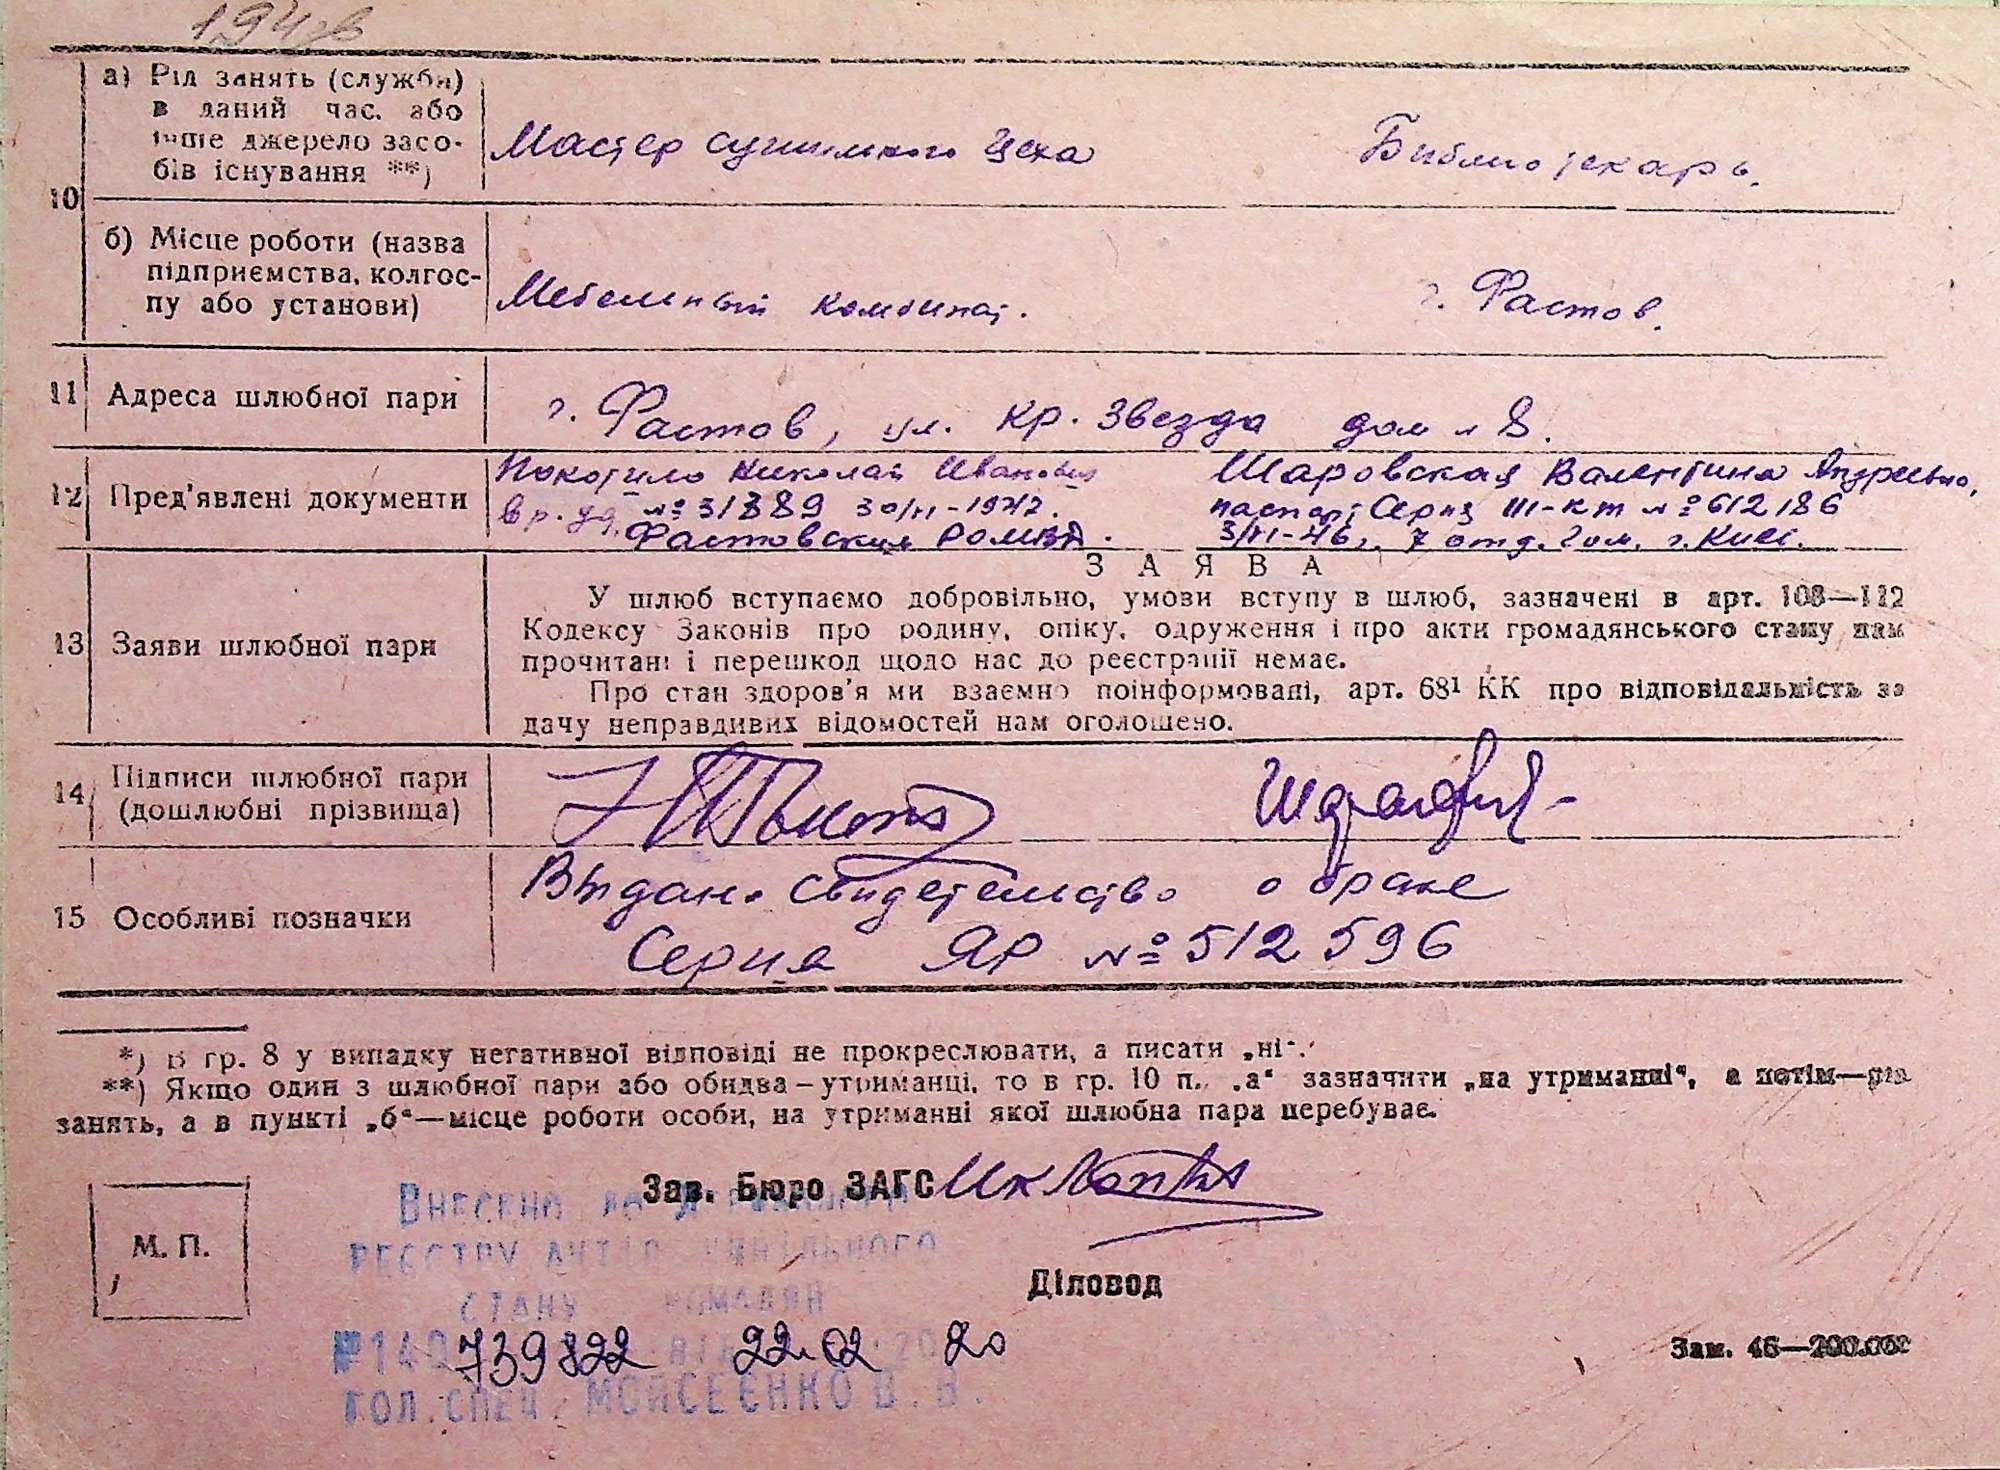 10
а) Рід занять (служби)
в даний час. або
інше джерело засо-
бів існування **)
Мастер сушильного цеха
Библиотекарь.
б) Місце роботи (назва
підприємства, колгос-
пу або установи)
Мебельный комбинат.
г. Фастов.
11 Адреса шлюбної пари
г. Фастов, ул. Кр. Звезда дом № 8.
12 Пред'явлені документи
Покотило Николай Иванович
вр. уд. № 31889 30/VI-1947г.
Фастовским РОМВД.
Шаровская Валентина Андреевна,
паспорт Серия III-КТ № 612186
3/VI-46г. 7 отд. г. Киев.
13 Заяви шлюбної пари
ЗАЯВА
У шлюб вступаємо добровільно, умови вступу в шлюб, зазначені в арт. 108—112
Кодексу Законів про родину, опіку, одруження і про акти громадянського стану нам
прочитані і перешкод щодо нас до реєстрації немає.
Про стан здоров'я ми взаємно поінформовані, арт. 68¹ КК про відповідальність за
дачу неправдивих відомостей нам оголошено.
14 Підписи шлюбної пари
(дошлюбні прізвища)
15 Особливі позначки
Выдано свидетельство о браке
Серия ЯР № 512596
*) В гр. 8 у випадку негативної відповіді не прокреслювати, а писати „ні".
**) Якщо один з шлюбної пари або обидва – утриманці, то в гр. 10 п. „а" зазначити „на утриманні", а потім—рід
занять, а в пункті „б"—місце роботи особи, на утриманні якої шлюбна пара перебуває.
Зав. Бюро ЗАГС
М. П.
Діловод
Внесено до Державного
реєстру актів цивільного
стану громадян
№140 739822 від 22.02 2020
гол. спец. Мойсеєнко В. В.
Зам. 46—200.000